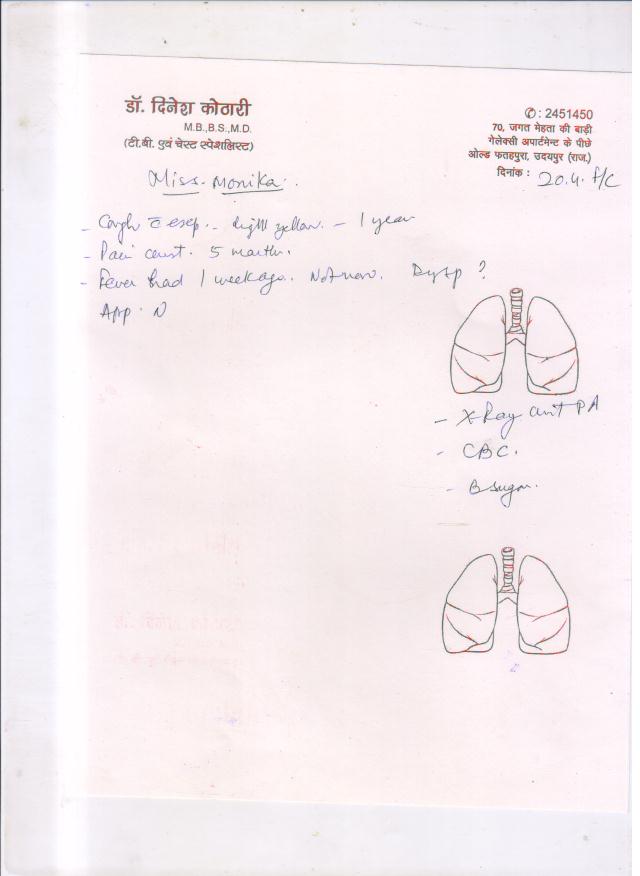 डॉ. दिनेश कोठारी
M.B.,B.S.,M.D.
(टी.बी. एवं चेस्ट स्पेशलिस्ट)
✆ : 2451450
70, जगत मेहता की बाड़ी
गेलेक्सी अपार्टमेन्ट के पीछे
ओल्ड फतहपुरा, उदयपुर (राज.)
दिनांक :
20.4.
Miss. Monika.
- Cough c̄ - light yellow. - 1 year
- Pain 5 month.
- Fever had 1 week ago. Not now. ?
App. N
- X-Ray PA
- CBC.
- B sugar.